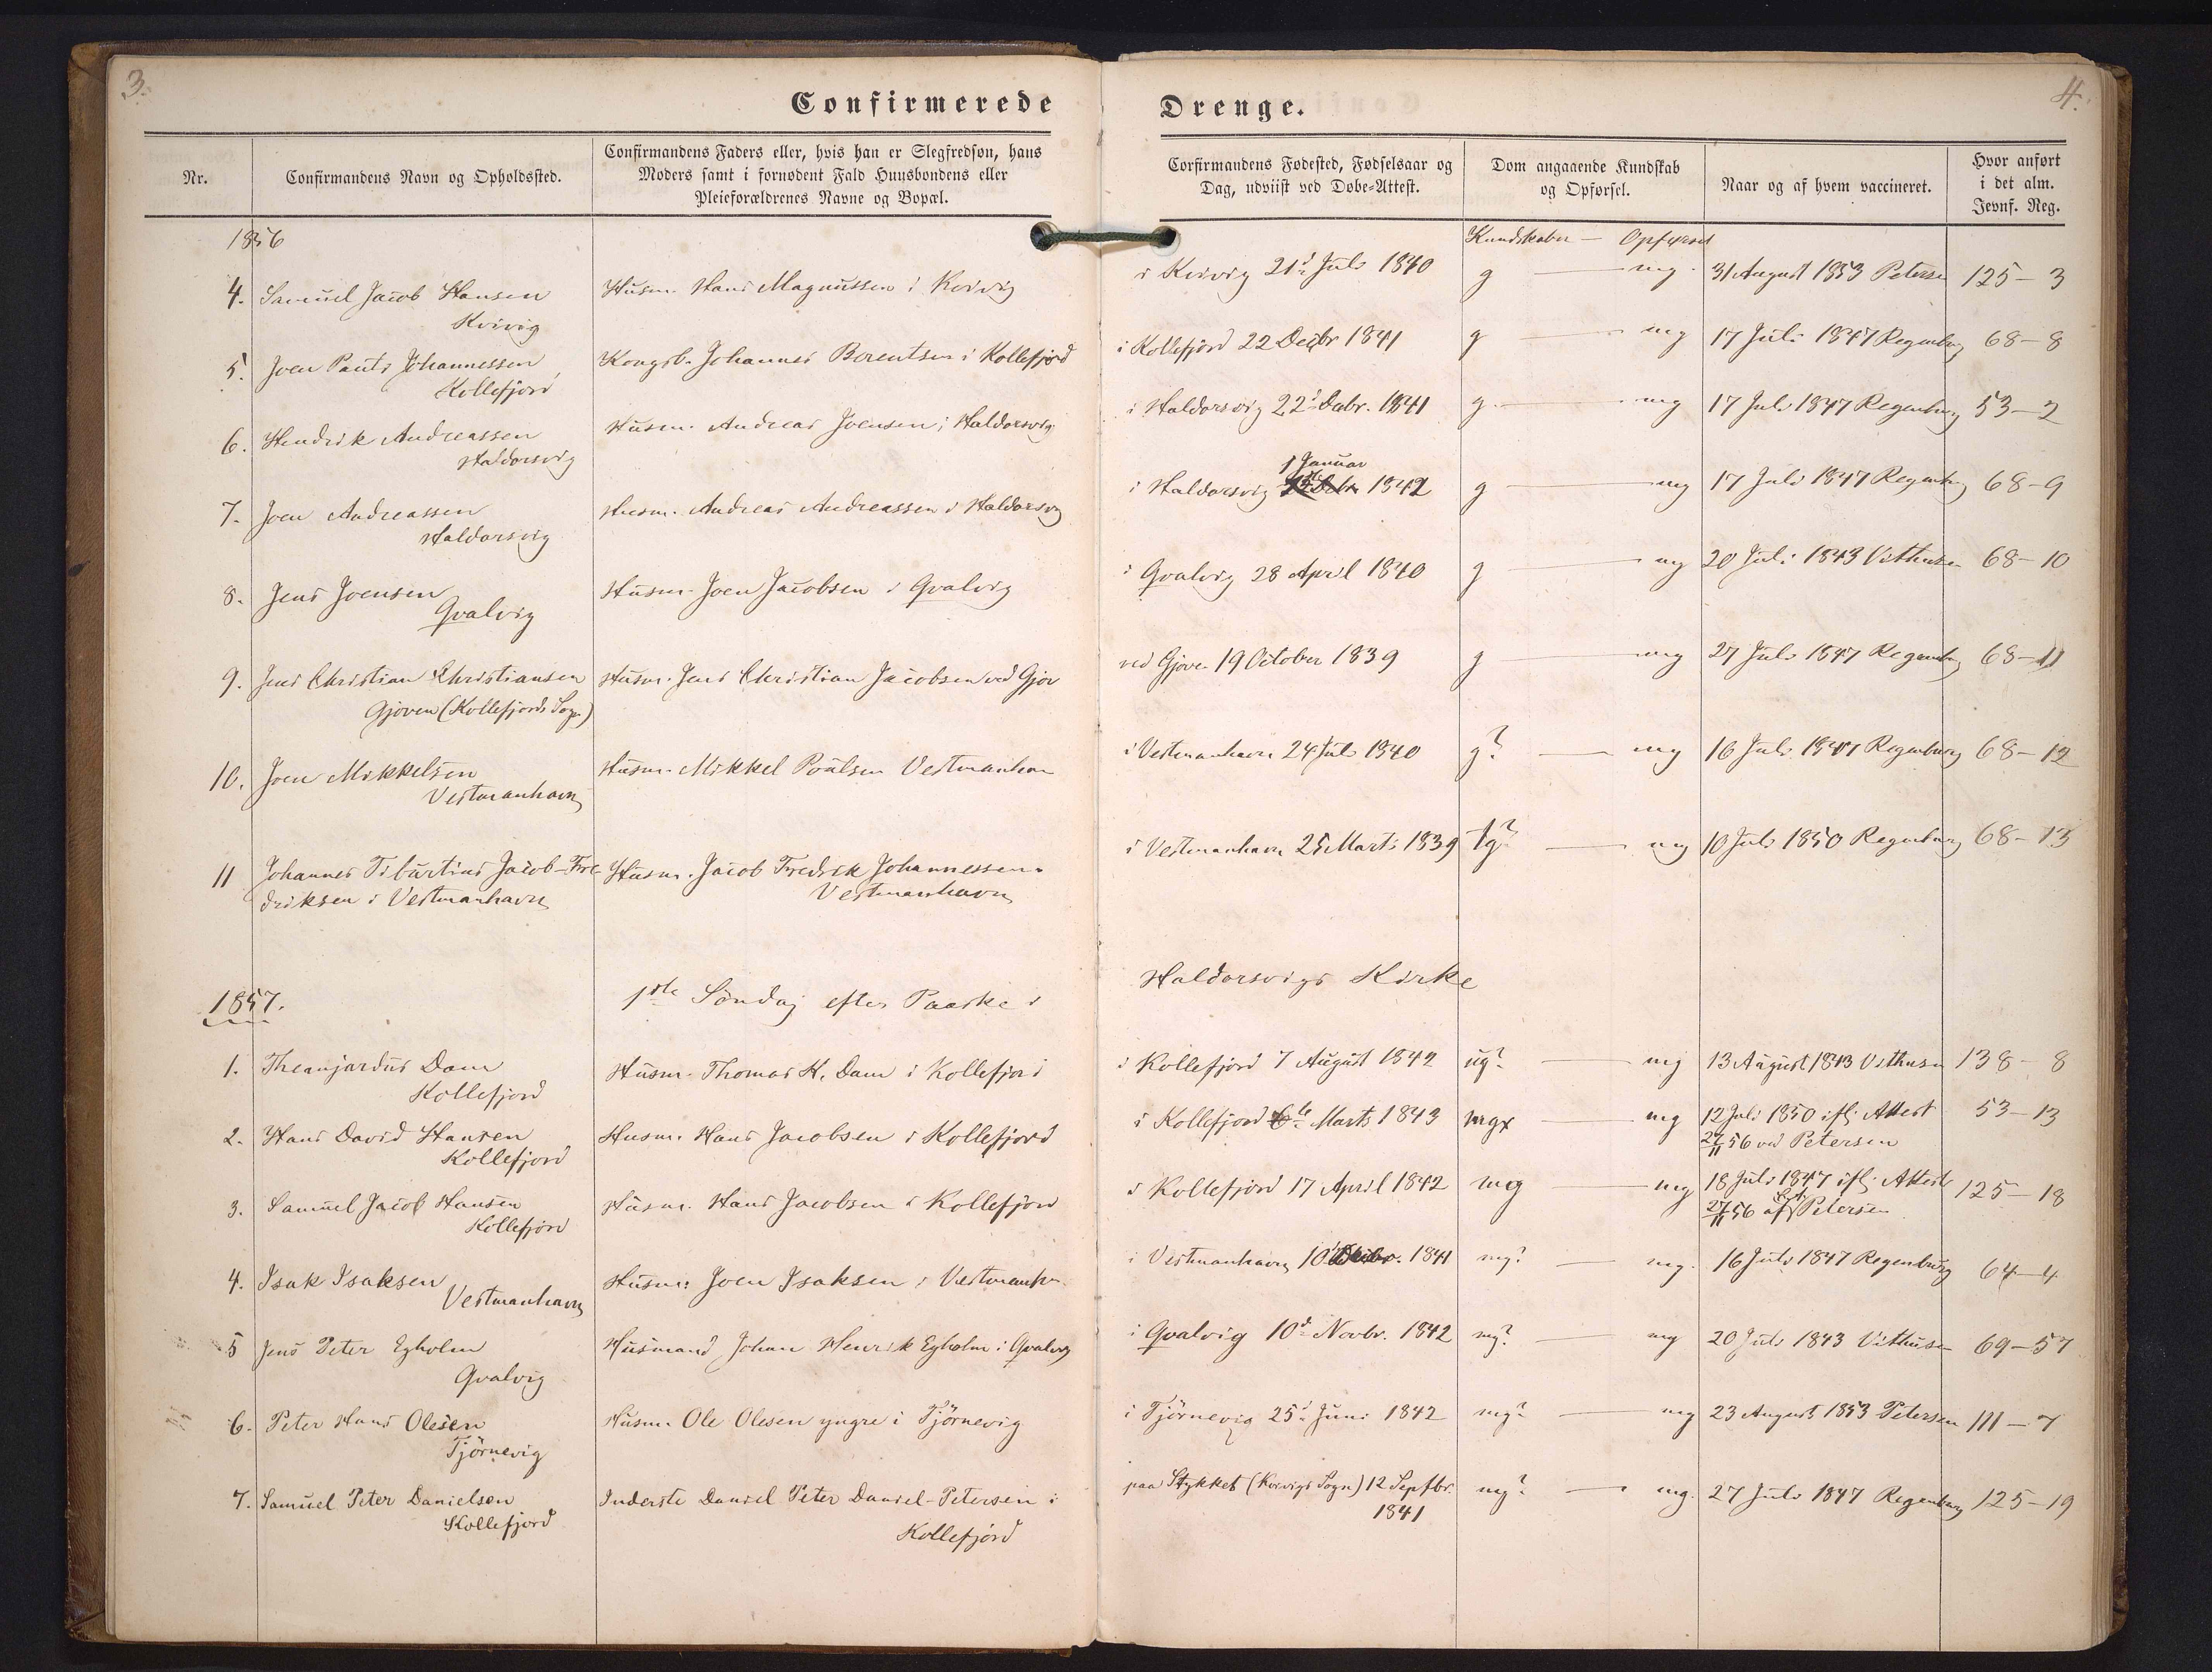 3.
4.
Confirmerede
Drenge.
Nr.
Confirmandens Navn og Opholdssted.
Confirmandens Faders eller, hvis han er Slegfredsøn, hans
Moders samt i fornødent Fald Huusbondens eller
Pleieforældrenes Navne og Bopæl.
Corfirmandens Fødested, Fødselsaar og
Dag, udviist ved Døbe=Attest.
Dom angaaende Kundskab
og Opførsel.
Naar og af hvem vaccineret.
Hvor anført
i det alm.
Jevnf. Reg.
1856
Kundskaber — Opførsel
4. Samuel Jacob Hansen
Kvivig
Husm. Hans Magnussen i Kvivig
i Kvivig 21d Juli 1840
g — mg.
31 August 1853 Petersen
125-3
5. Joen Pauli Johannessen
Kollefjord
Kongsb. Johannes Berentsen i Kollefjord
i Kollefjord 22 Decbr 1841
g — mg
17 Juli 1847 Regenburg
68-8
6. Hendrik Andreassen
Haldorsvig
Husm. Andreas Joensen i Haldorsvig
i Haldorsvig 22d Debr. 1841
g. — mg
17 Juli 1847 Regenburg
53-2
7. Joen Andreassen
Haldorsvig
Husm. Andreas Andreassen i Haldorsvig
1 Januar
i Haldorsvig 1842
g — mg
17 Juli 1847 Regenburg
68-9
8. Jens Joensen
Qvalvig
Husm. Joen Jacobsen i Qvalvig
i Qvalvig 28 April 1840
g — mg
20 Juli 1843 Vithusen
68-10
9. Jens Christian Christiansen
Gjoven (Kollefjords Sogn)
Husm. Jens Christian Jacobsen ved Gjov
ved Gjoven 19 October 1839
g — mg
27 Juli 1847 Regenburg
68-11
10. Joen Mikkelsen
Vestmanhavn
Husm. Mikkel Poulsen Vestmanhavn
i Vestmanhavn 24 Juli 1840
g? — mg
16 Juli 1847 Regenburg
68-12
11 Johannes Tiburtius Jacob-Fre-
driksen i Vestmanhavn
Husm. Jacob Fredrik Johannessen
Vestmanhavn
i Vestmanhavn 25 Marts 1839
tg? — mg
10 Juli 1850 Regenburg
68-13
1857.
1ste Söndag efter Paaske i
Haldorsvigs Kirke
1. Theanjardus Dam
Kollefjord
Husm. Thomas K. Dam i Kollefjord
i Kollefjord 7 August 1842
ug? — mg
13 August 1843 Vithusen
138-8
2. Hans David Hansen
Kollefjord
Husm. Hans Jacobsen i Kollefjord
i Kollefjord 6te Marts 1843
mgx — mg
12 Juli 1850 ifl. Attest
27/11 56 ved Petersen
53-13
3. Samuel Jacob Hansen
Kollefjord
Husm. Hans Jacobsen i Kollefjord
i Kollefjord 17 April 1842
mg — mg
18 Juli 1847 ifl. Attest
27/11 56 af Petersen
125-18
4. Isak Isaksen
Vestmanhavn
Husm: Joen Isaksen i Vestmanh.
i Vestmanhavn 10 1841
mg? — mg.
16 Juli 1847 Regenburg
64-4
5 Jens Peter Egholm
Qvalvig
Husmand Johan Henrik Egholm i Qvalvig
i Qvalvig 10d Novbr. 1842
mg? — mg
20 Juli 1843 Vithusen
69-57
6. Peter Hans Olesen
Tjörnevig
Husm. Ole Olesen yngre i Tjörnevig
i Tjörnevig 25d Juni 1842
mg? — mg
23 August 1853 Petersen
111-7
7. Samuel Peter Danielsen
Kollefjord
Inderste Daniel Peter Daniel-Petersen i
Kollefjörd
paa Stykket (Kvivigs Sogn) 12 Septbr.
1841
mg? — mg.
27 Juli 1847 Regenburg
125-19